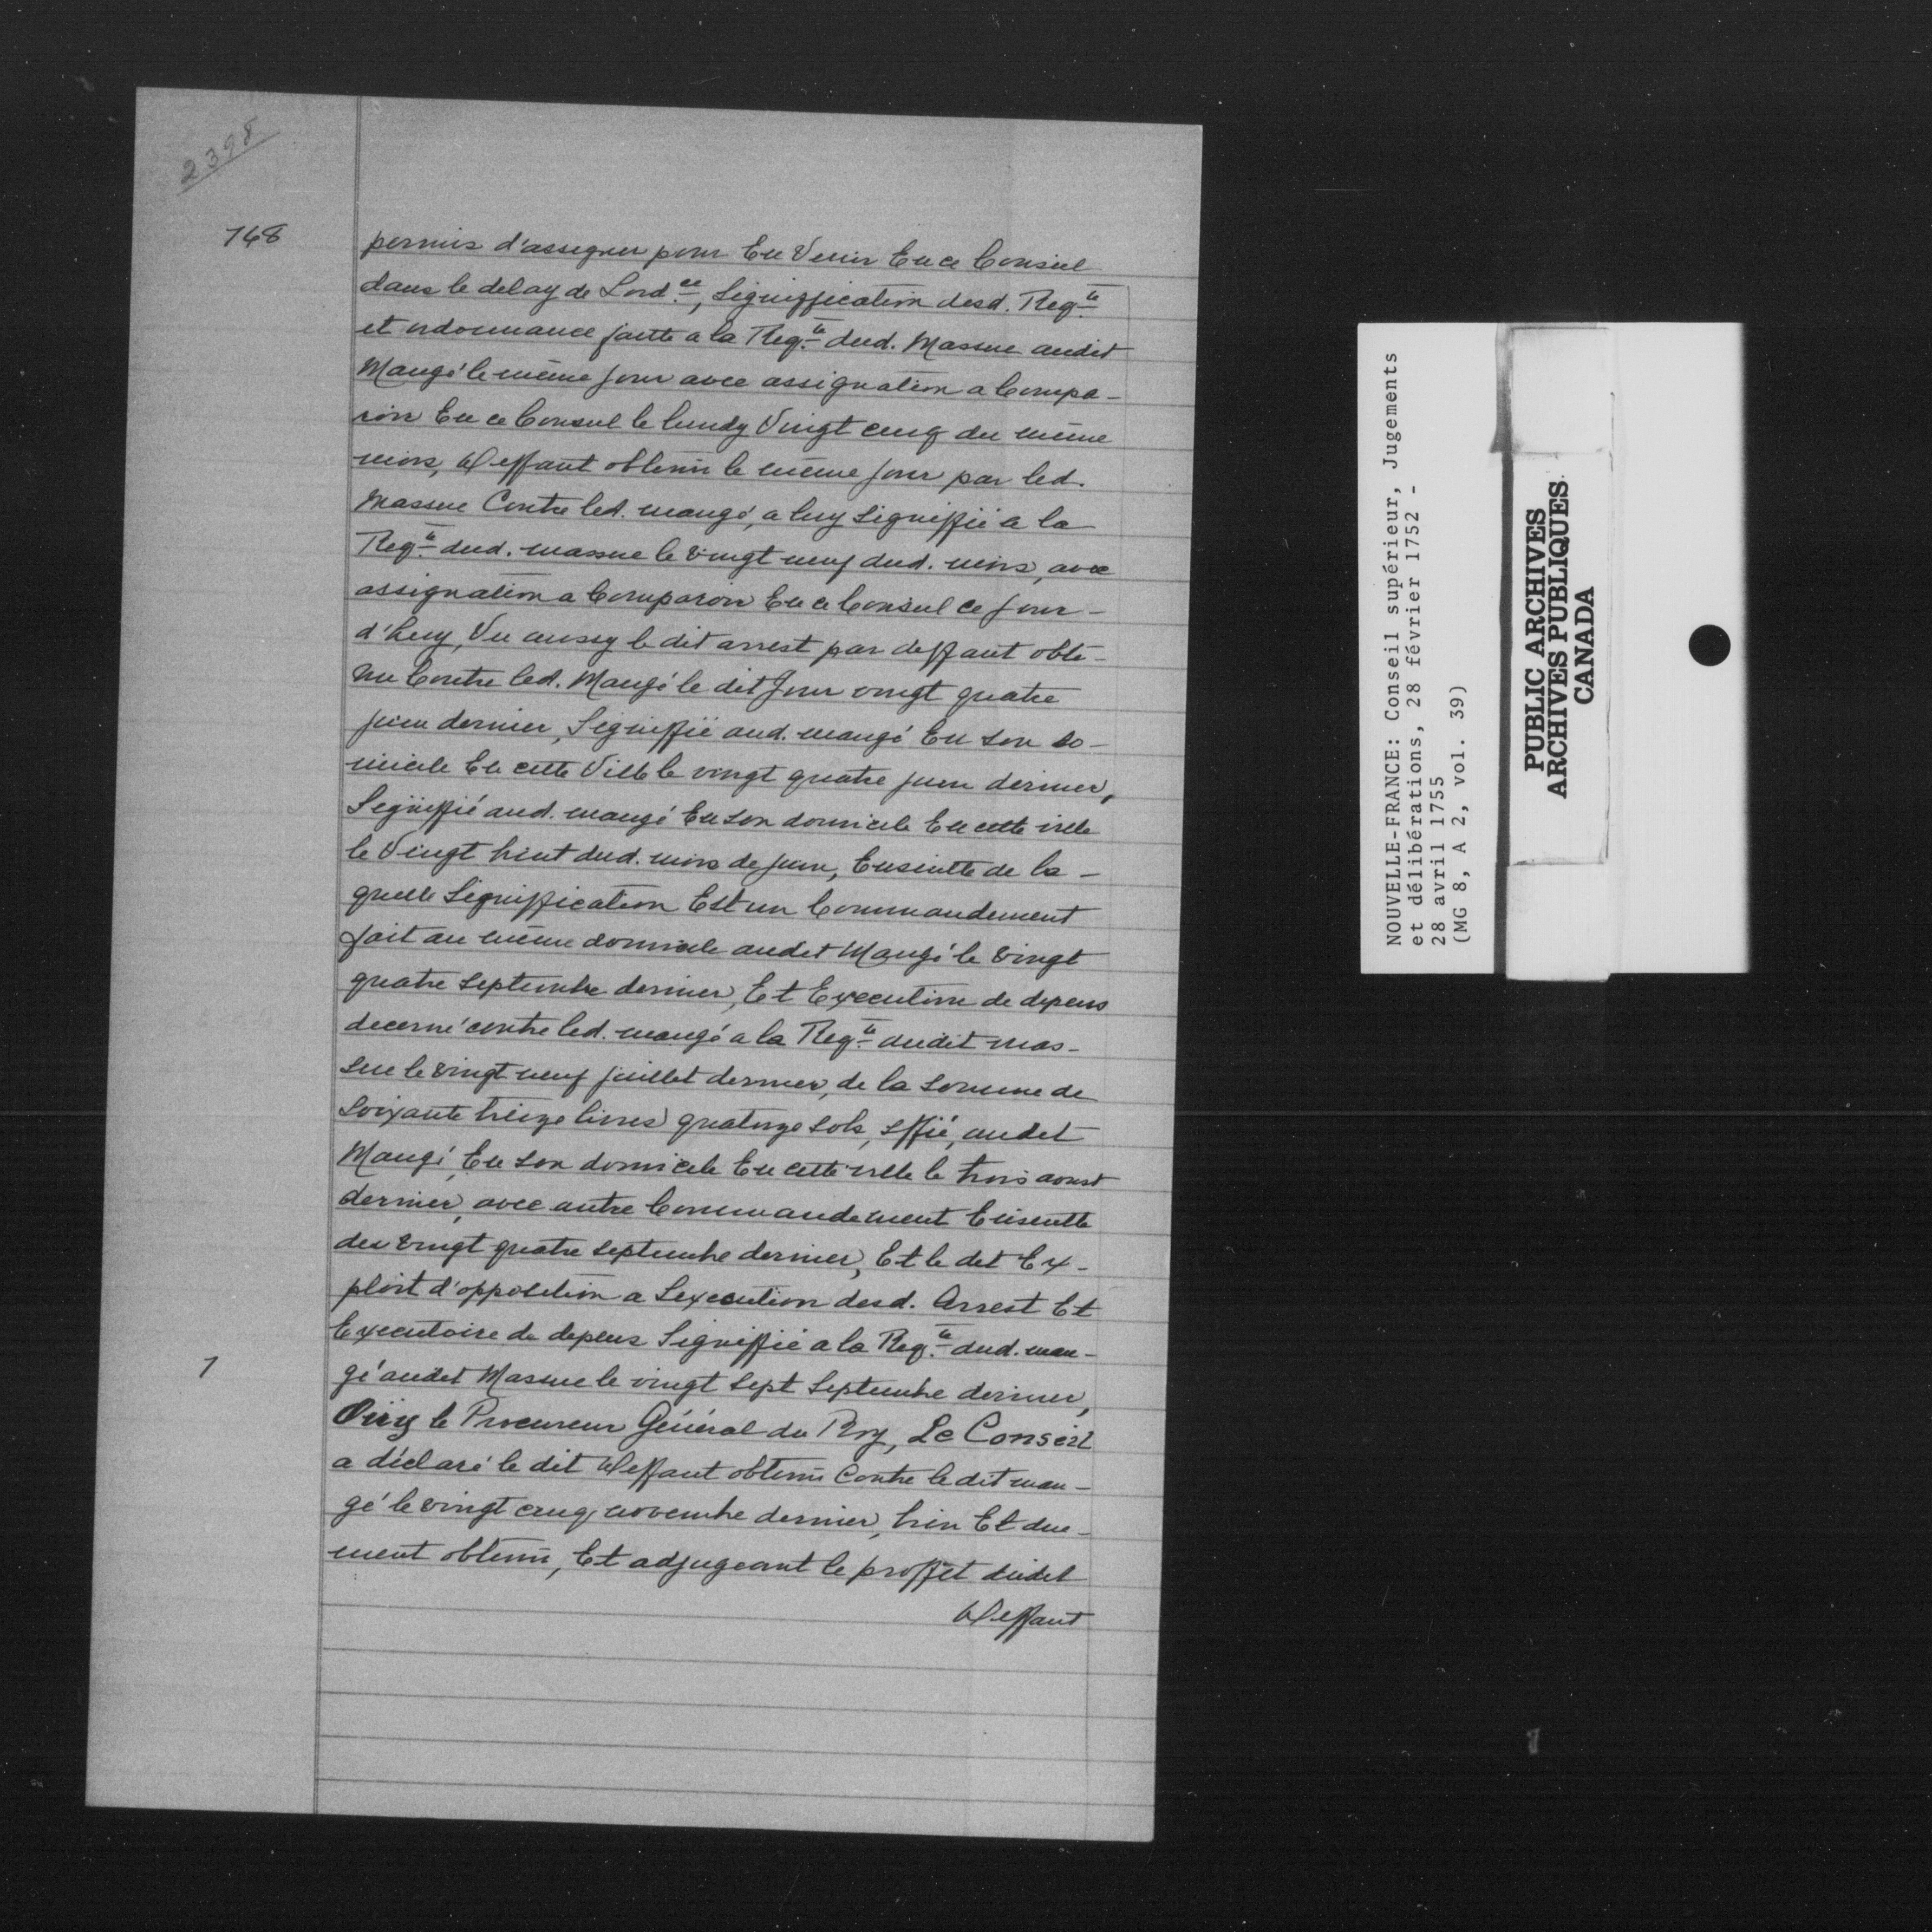 2398
768
permis d'assigner pour En Venir En ce Conseil
dans le delay de Lord.ce, Signiffication desd. Req.te
et ordonnance faitte a la Req.te dud. Massue audit
Maugé le même jour avec assignation a Compa-
roir En ce Conseil le lundy Vingt cinq du même
mois, Deffaut obtenu le même jour par led.
Massue Contre led. maugé, a luy Signiffié a la
Req.te dud. massue le vingt neuf dud. mois, avec
assignation a Comparoir En ce Conseil ce jour-
d'huy, Vu aussy le dit arrest par deffaut obte-
nu Contre led. Maugé le dit Jour vingt quatre
juin dernier, Signiffié aud. maugé En son do-
micile En cette Ville le vingt quatre juin dernier,
Signiffié aud. maugé En son domicile En cette ville
le Vingt huit dud. mois de juin, Ensuitte de la-
quelle Signiffication Est un Commandement
fait au même domicile audit Maugé le Vingt
quatre Septembre dernier, Et Executoire de depens
decerné contre led. maugé a la Req.te dudit mas-
sue le vingt neuf juillet dernier, de la Somme de
Soixante treize livres quatorze Sols, Sffié, audit
Maugé, En son domicile En cette ville le trois aoust
dernier, avec autre Commandement Ensuitte
du vingt quatre Septembre dernier, Et le dit Ex-
ploit d'opposition a Lexecution desd. Arrest Et
Executoire de depens Signiffié a la Req.te dud. mau-
1
gé audit Massue le vingt Sept Septembre dernier,
Ouy le Procureur Général du Roy, Le Conseil
a déclaré le dit Deffaut obtenu Contre le dit mau-
gé le vingt cinq novembre dernier, bien Et due-
ment obtenu, Et adjugeant le proffit dudit
Deffaut
NOUVELLE-FRANCE: Conseil supérieur, Jugements
et délibérations, 28 février 1752 -
28 avril 1755
(MG 8, A 2, vol. 39)
PUBLIC ARCHIVES
ARCHIVES PUBLIQUES
CANADA